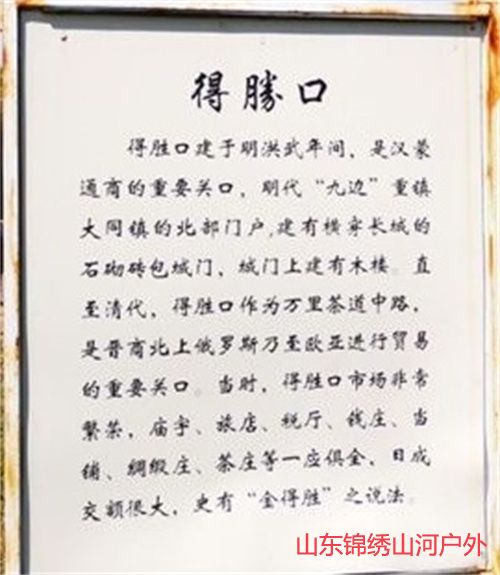 得勝口
得胜口建于明洪武年间，是汉蒙
通商的重要关口，明代“九边”重镇
大同镇的北部门户,建有横穿长城的
石砌砖包城门，城门上建有木楼。直
至清代，得胜口作为万里茶道中路，
是晋商北上俄罗斯乃至欧亚进行贸易
的重要关口。当时，得胜口市场非常
繁荣，庙宇、旅店、税厅、钱庄、当
铺、绸缎庄、茶庄等一应俱全，日成
交额很大，史有“金得胜”之说法。
山东锦绣山河户外